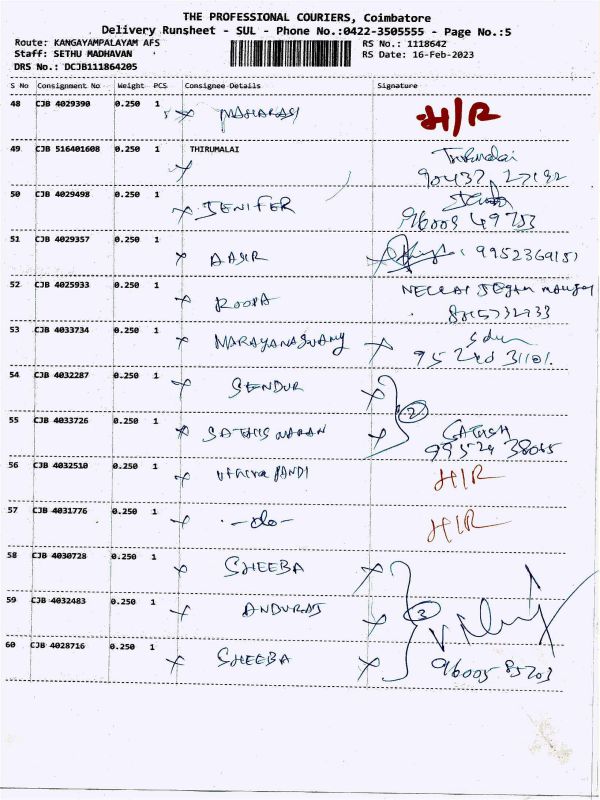 THE PROFESSIONAL COURIERS, Coimbatore
Delivery Runsheet - SUL - Phone No.:0422-3505555 - Page No.:5
Route: KANGAYAMPALAYAM AFS RS No.: 1118642
Staff: SETHU MADHAVAN RS Date: 16-Feb-2023
DRS No.: DCJB111864205
S No Consignment No Weight PCS Consignee Details Signature
48 CJB 4029390 0.250 1 MAHARASI H/R
49 CJB 516401608 0.250 1 THIRUMALAI Thirumalai
50 CJB 4029498 0.250 1 JENIFER
96009 49753
51 CJB 4029357 0.250 1 AASIR
52 CJB 4025933 0.250 1 ROOPA
53 CJB 4033734 0.250 1 NARAYANASWAMY
95240 31101.
54 CJB 4032287 0.250 1 SENDUR
2
55 CJB 4033726 0.250 1
56 CJB 4032510 0.250 1 PANDI H/R
57 CJB 4031776 0.250 1 -do- H/R
58 CJB 4030728 0.250 1 SHEEBA
59 CJB 4032483 0.250 1 3
60 CJB 4028716 0.250 1 SHEEBA
96005 85203